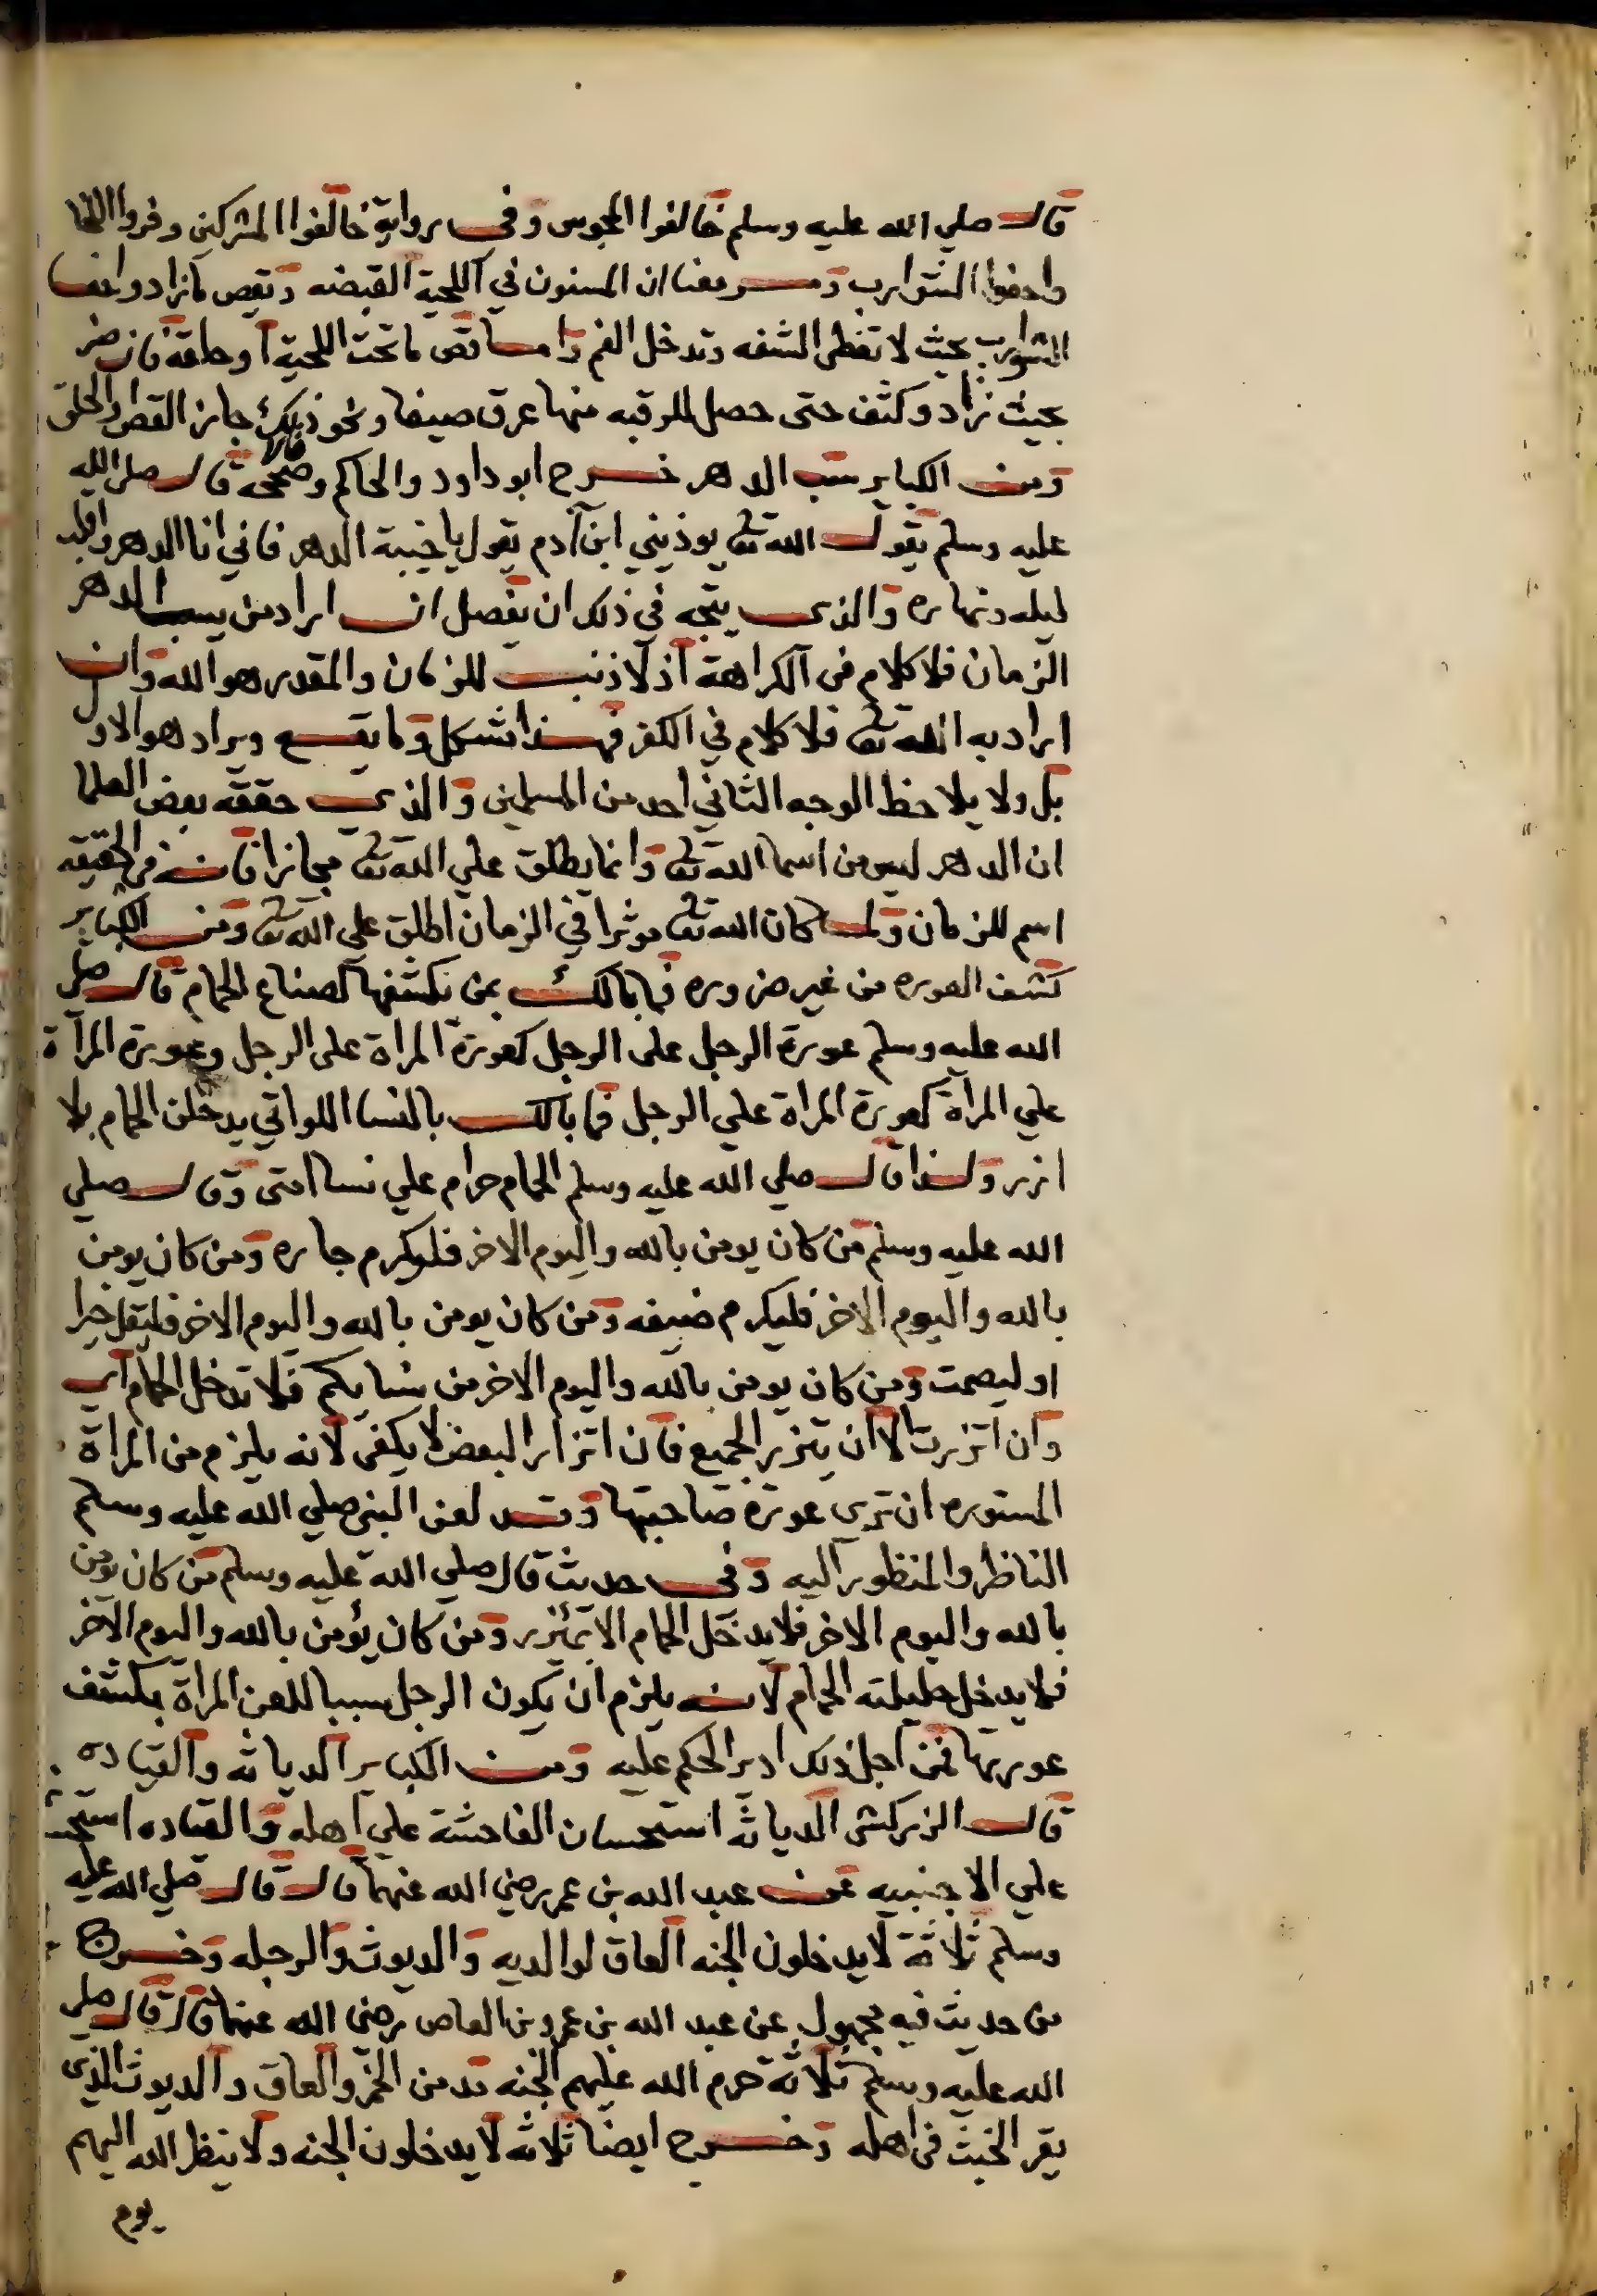 قال صلي الله عليه وسلم خالفوا المجوس وفي رواية خالفوا المشركين وفروا اللحا
واحفوا الشوارب ومر معنا ان المسنون في اللحية القبضه وتقص ما زاد واحفا
الشوارب بحيث لا تغطى الشفه وتدخل الفم واما قص ما تحت اللحية او حلقه فان ضر
بحيث زاد وكثف حتى حصل للرقبه منها عرق صيفا ونحو ذلك جاز القص والحلق
ومن الكباير سب الدهر خرج ابو داود والحاكم وصححه قال قال صلى الله
عليه وسلم يقول الله تعالى يوذيني ابن آدم يقول يا خيبة الدهر فاني انا الدهر واقلب
ليله ونهاره والذي يتجه في ذلك ان تفصل ان اراد من يسب الدهر
الزمان فلا كلام في الكراهة اذ لا ذنب للزمان والمقدر هو الله وان
اراد به الله تعالى فلا كلام في الكفر فهذا شكل وما يقع ويراد هو الاول
بل ولا يلاحظ الوجه الثاني احد من المسلمين والذي حققه بعض العلما
ان الدهر ليس من اسما الله تعالى وانما يطلق علي الله تعالى مجازا فانه في الحقيقه
اسم للزمان ولما كان الله تعالى موثرا في الزمان اطلق علي الله تعالى ومن الكباير
كشف العوره من غير ضروره فما بالك بمن يكشفها لصناع الحمام قال صلى
الله عليه وسلم عورة الرجل على الرجل كعورة المراة على الرجل وعورة المرآة
علي المرأة كعورة المراة علي الرجل فما بالك بالنسا اللواتي يدخلن الحمام بلا
ازر ولذا قال صلي الله عليه وسلم الحمام حرام علي نسا امتى وقال صلي
الله عليه وسلم من كان يومن بالله واليوم الاخر فليكرم جاره ومن كان يومن
بالله واليوم الاخر فليكرم ضيفه ومن كان يومن بالله واليوم الاخر فليقل خيرا
او ليصمت ومن كان يومن بالله واليوم الاخر من نسايكم فلا تدخل الحمام اي
وان اتزرت الا ان يتزر الجميع فان اتزار البعض لا يكفى لانه يلزم من المراة
المستوره ان تري عورة صاحبتها وقد لعن النبي صلي الله عليه وسلم
الناظر والمنظور اليه وفي حديث قال صلي الله عليه وسلم من كان يومن
بالله واليوم الاخر فلا يدخل الحمام الا بمئزر ومن كان يؤمن بالله واليوم الاخر
فلا يدخل حليلته الحمام لانه يلزم ان يكون الرجل سببا للعن المراة بكشف
عورتها فمن اجل ذلك ادير الحكم عليه ومن الكباير الدياثه والقياده
قال الزركشى الدياثه استحسان الفاحشة علي اهله والقياده استحسـ
علي الاجنبيه عن عبد الله بن عمر رضي الله عنهما قال قال صلي الله عليه
وسلم ثلاثة لا يدخلون الجنه العاق لوالديه والديوث والرجله وخرج
من حديث فيه مجهول عن عبد الله بن عمرو بن العاص رضي الله عنهما قال قال صلى
الله عليه وسلم ثلاثة حرم الله عليهم الجنه مدمن الخمر والعاق والديوث الذي
يقر الخبث في اهله وخرج ايضا ثلاثه لا يدخلون الجنه ولا ينظر الله اليهم
يوم